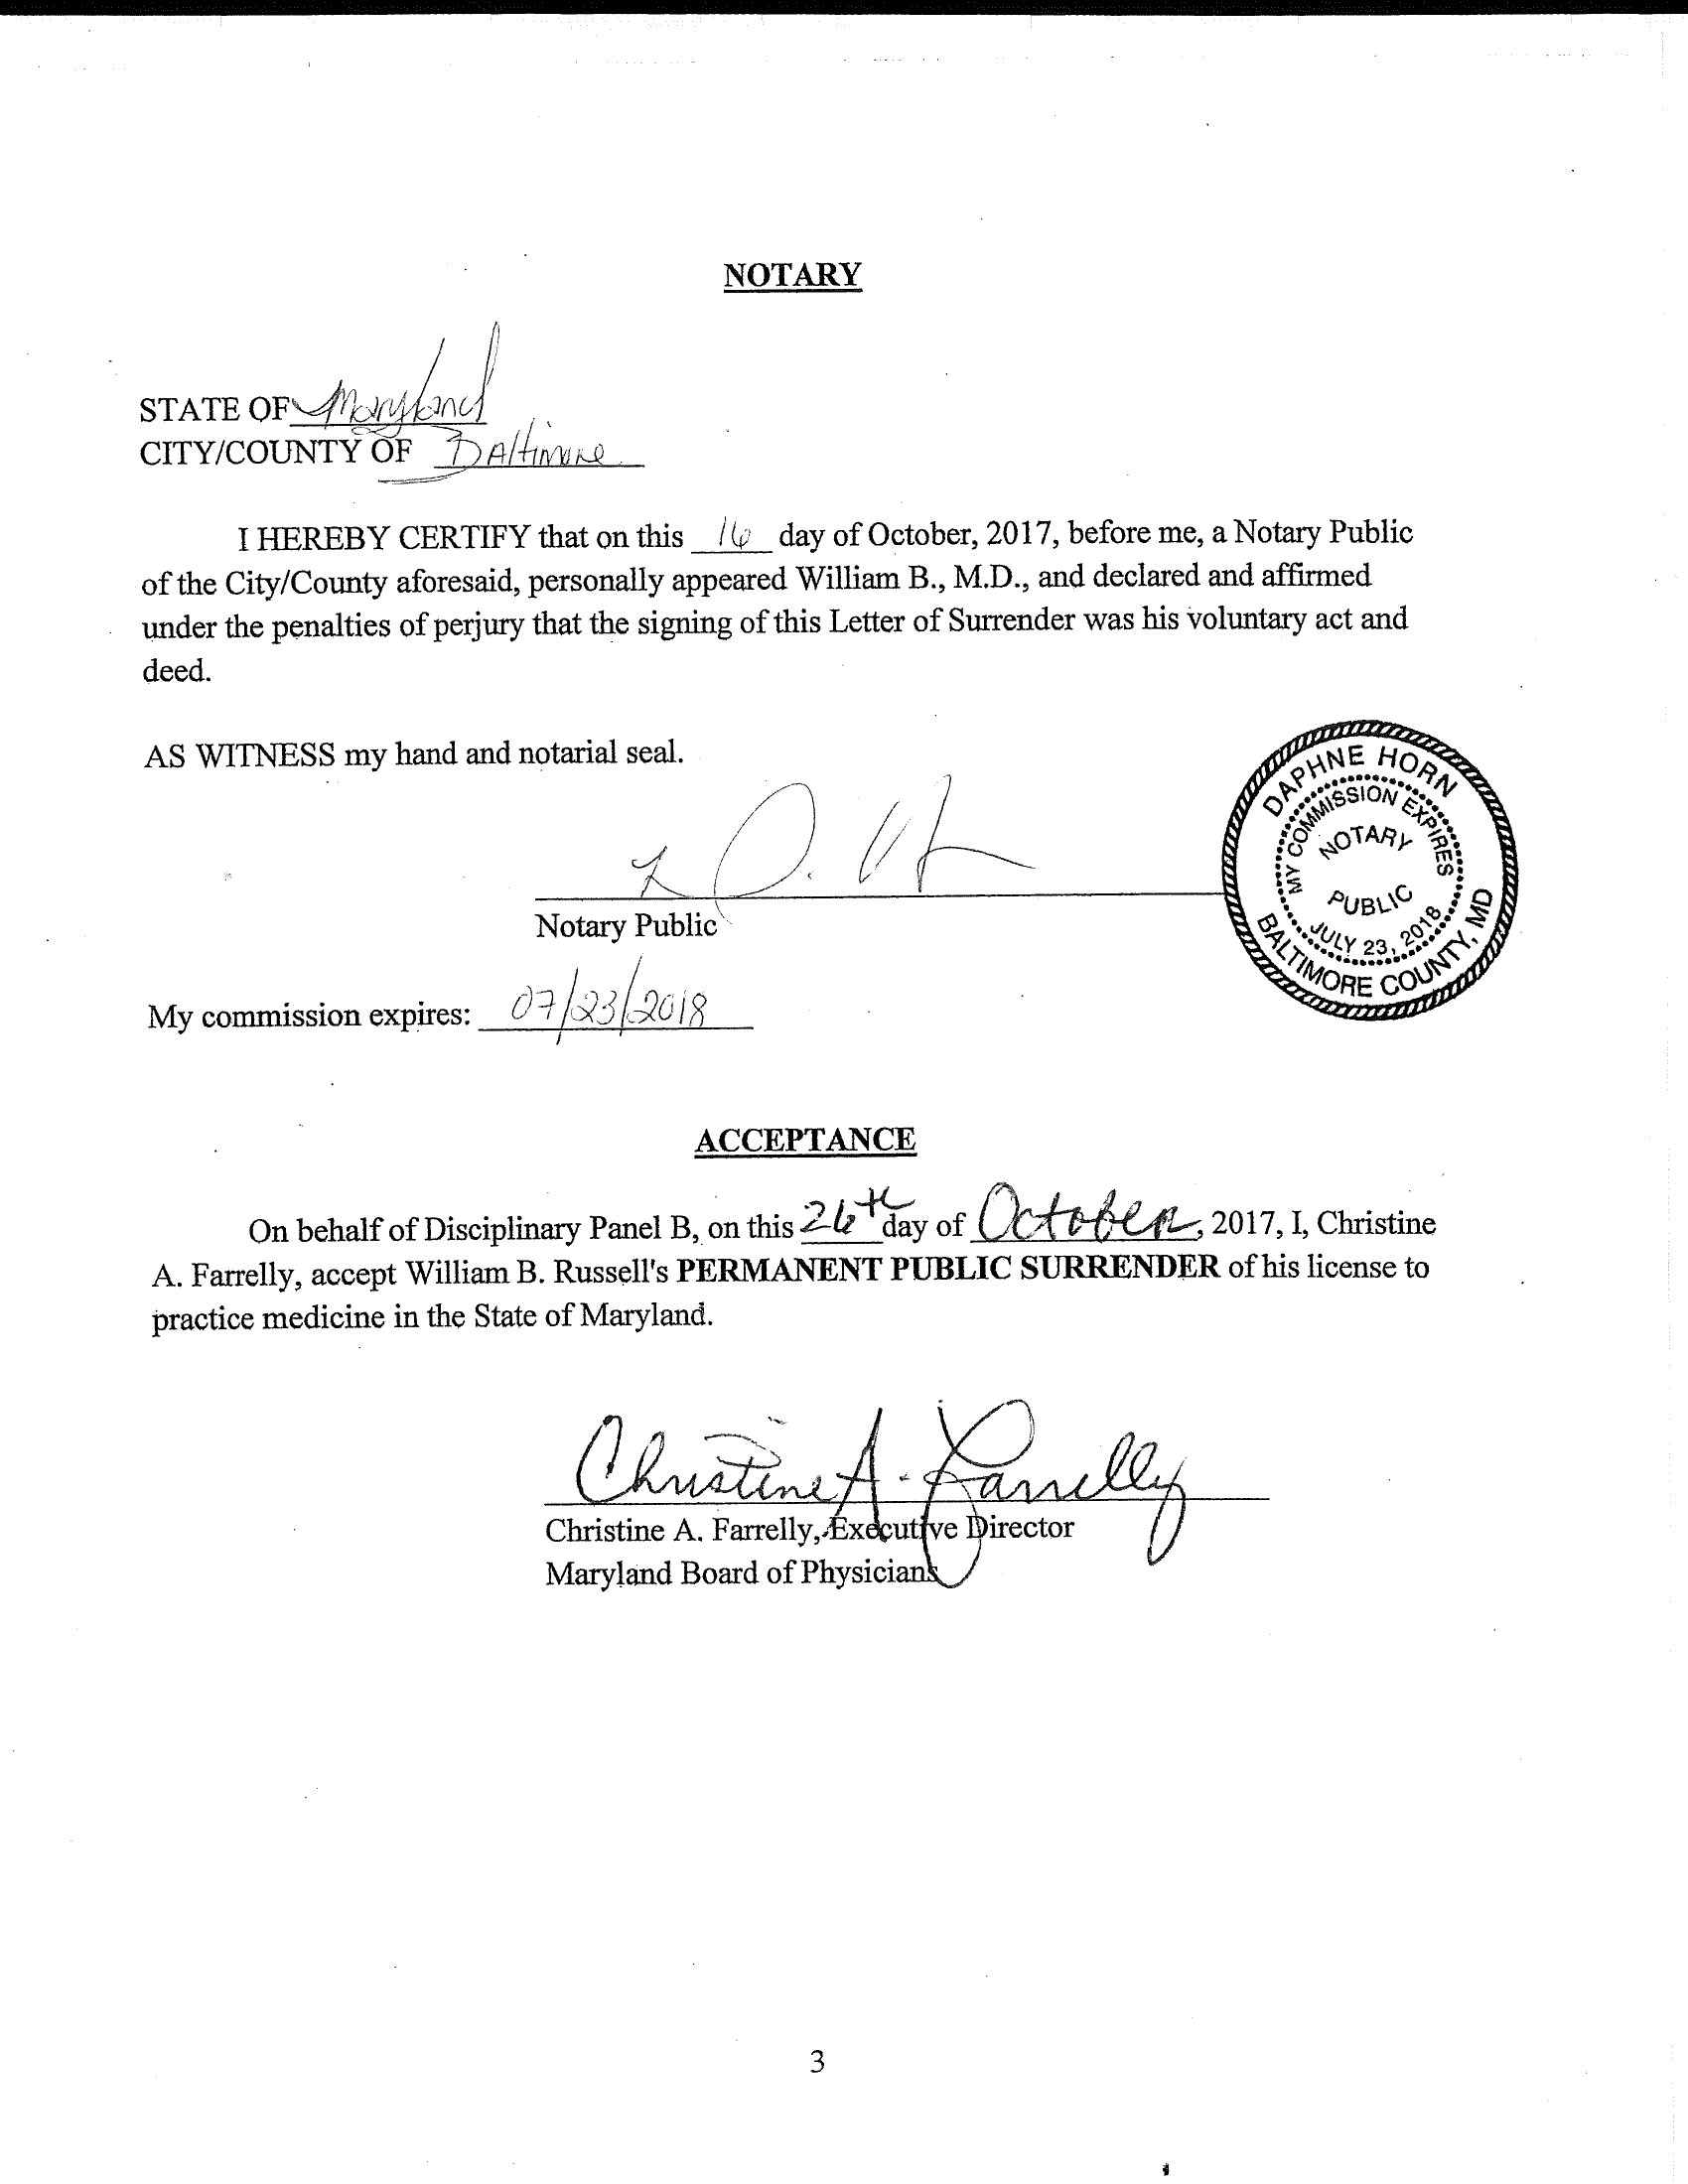 NOTARY
STATE OF Maryland
CITY/COUNTY OF Baltimore
I HEREBY CERTIFY that on this 16 day of October, 2017, before me, a Notary Public
of the City/County aforesaid, personally appeared William B., M.D., and declared and affirmed
under the penalties of perjury that the signing of this Letter of Surrender was his voluntary act and
deed.
AS WITNESS my hand and notarial seal.
DAPHNE HORN
MY COMMISSION EXPIRES
NOTARY
PUBLIC
JULY 23, 2018
BALTIMORE COUNTY, MD
Notary Public
My commission expires: 07/23/2018
ACCEPTANCE
On behalf of Disciplinary Panel B, on this 26th day of October, 2017, I, Christine
A. Farrelly, accept William B. Russell's PERMANENT PUBLIC SURRENDER of his license to
practice medicine in the State of Maryland.
Christine A. Farrelly
Christine A. Farrelly, Executive Director
Maryland Board of Physicians
3